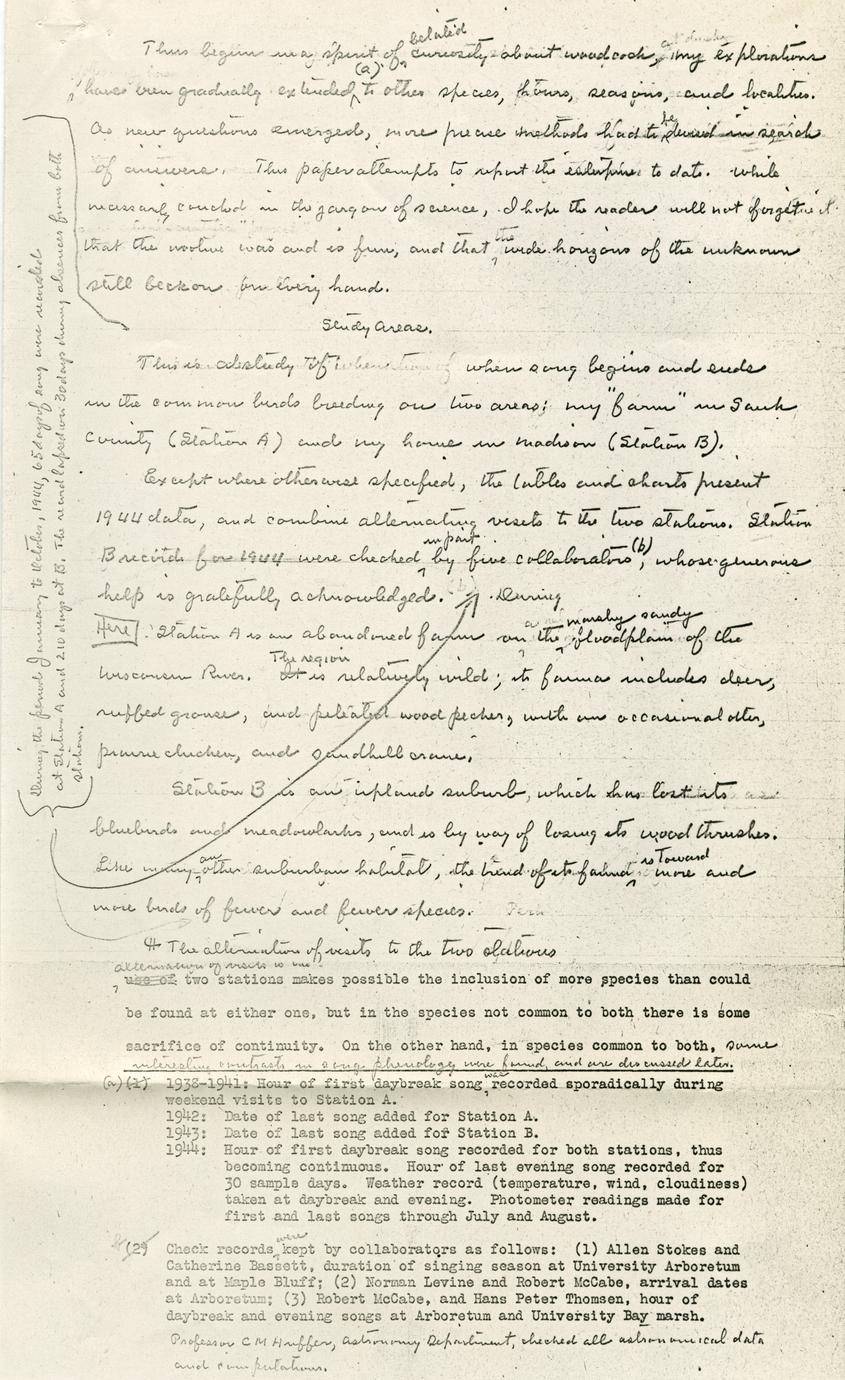 Thus began my spirit of belated curiosity about woodcock, my explorations
have been gradually extended (a) to other species, hours, seasons, and localities.
As new questions emerged, more precise methods had to be devised in search
of answers. This paper attempts to report the enterprise to date. While
necessarily couched in the jargon of science, I hope the reader will not forget
that the motive was and is fun, and that the wide horizons of the unknown
still beckon on every hand.
Study Areas.
This is a study of when song begins and ends
in the common birds breeding on two areas: my "farm" in Sauk
County (Station A) and my home in Madison (Station B).
Except where otherwise specified, the tables and charts present
1944 data, and combine alternating visits to the two stations. Station
B records for 1944 were checked in part by five collaborators (b), whose generous
help is gratefully acknowledged. During
Here Station A is an abandoned farm on the marshy sandy floodplain of the
Wisconsin River. The region It is relatively wild; its fauna includes deer,
ruffed grouse, and pileated woodpecker, with an occasional otter,
prairie chicken, and sandhill crane.
Station B is an upland suburb, which has lost its
bluebirds and meadowlarks, and is by way of losing its wood thrushes.
Like many another suburban habitat, the trend of its fauna is toward more and
more birds of fewer and fewer species.
The alternation of visits to the two stations
alternation of visits to
use of two stations makes possible the inclusion of more species than could
be found at either one, but in the species not common to both there is some
sacrifice of continuity. On the other hand, in species common to both, some
interesting contrasts in song phenology were found, and are discussed later.
(a) (1) 1938-1941: Hour of first daybreak song was recorded sporadically during
weekend visits to Station A.
1942: Date of last song added for Station A.
1943: Date of last song added for Station B.
1944: Hour of first daybreak song recorded for both stations, thus
becoming continuous. Hour of last evening song recorded for
30 sample days. Weather record (temperature, wind, cloudiness)
taken at daybreak and evening. Photometer readings made for
first and last songs through July and August.
(2) Check records were kept by collaborators as follows: (1) Allen Stokes and
Catherine Bassett, duration of singing season at University Arboretum
and at Maple Bluff; (2) Norman Levine and Robert McCabe, arrival dates
at Arboretum; (3) Robert McCabe, and Hans Peter Thomsen, hour of
daybreak and evening songs at Arboretum and University Bay marsh.
Professor C M Huffer, Astronomy Department, checked all astronomical data
and computations.
During the period January to October, 1944, 65 days of song were recorded
at Station A and 210 days at B. The record lapsed on 30 days during absences from both
stations.